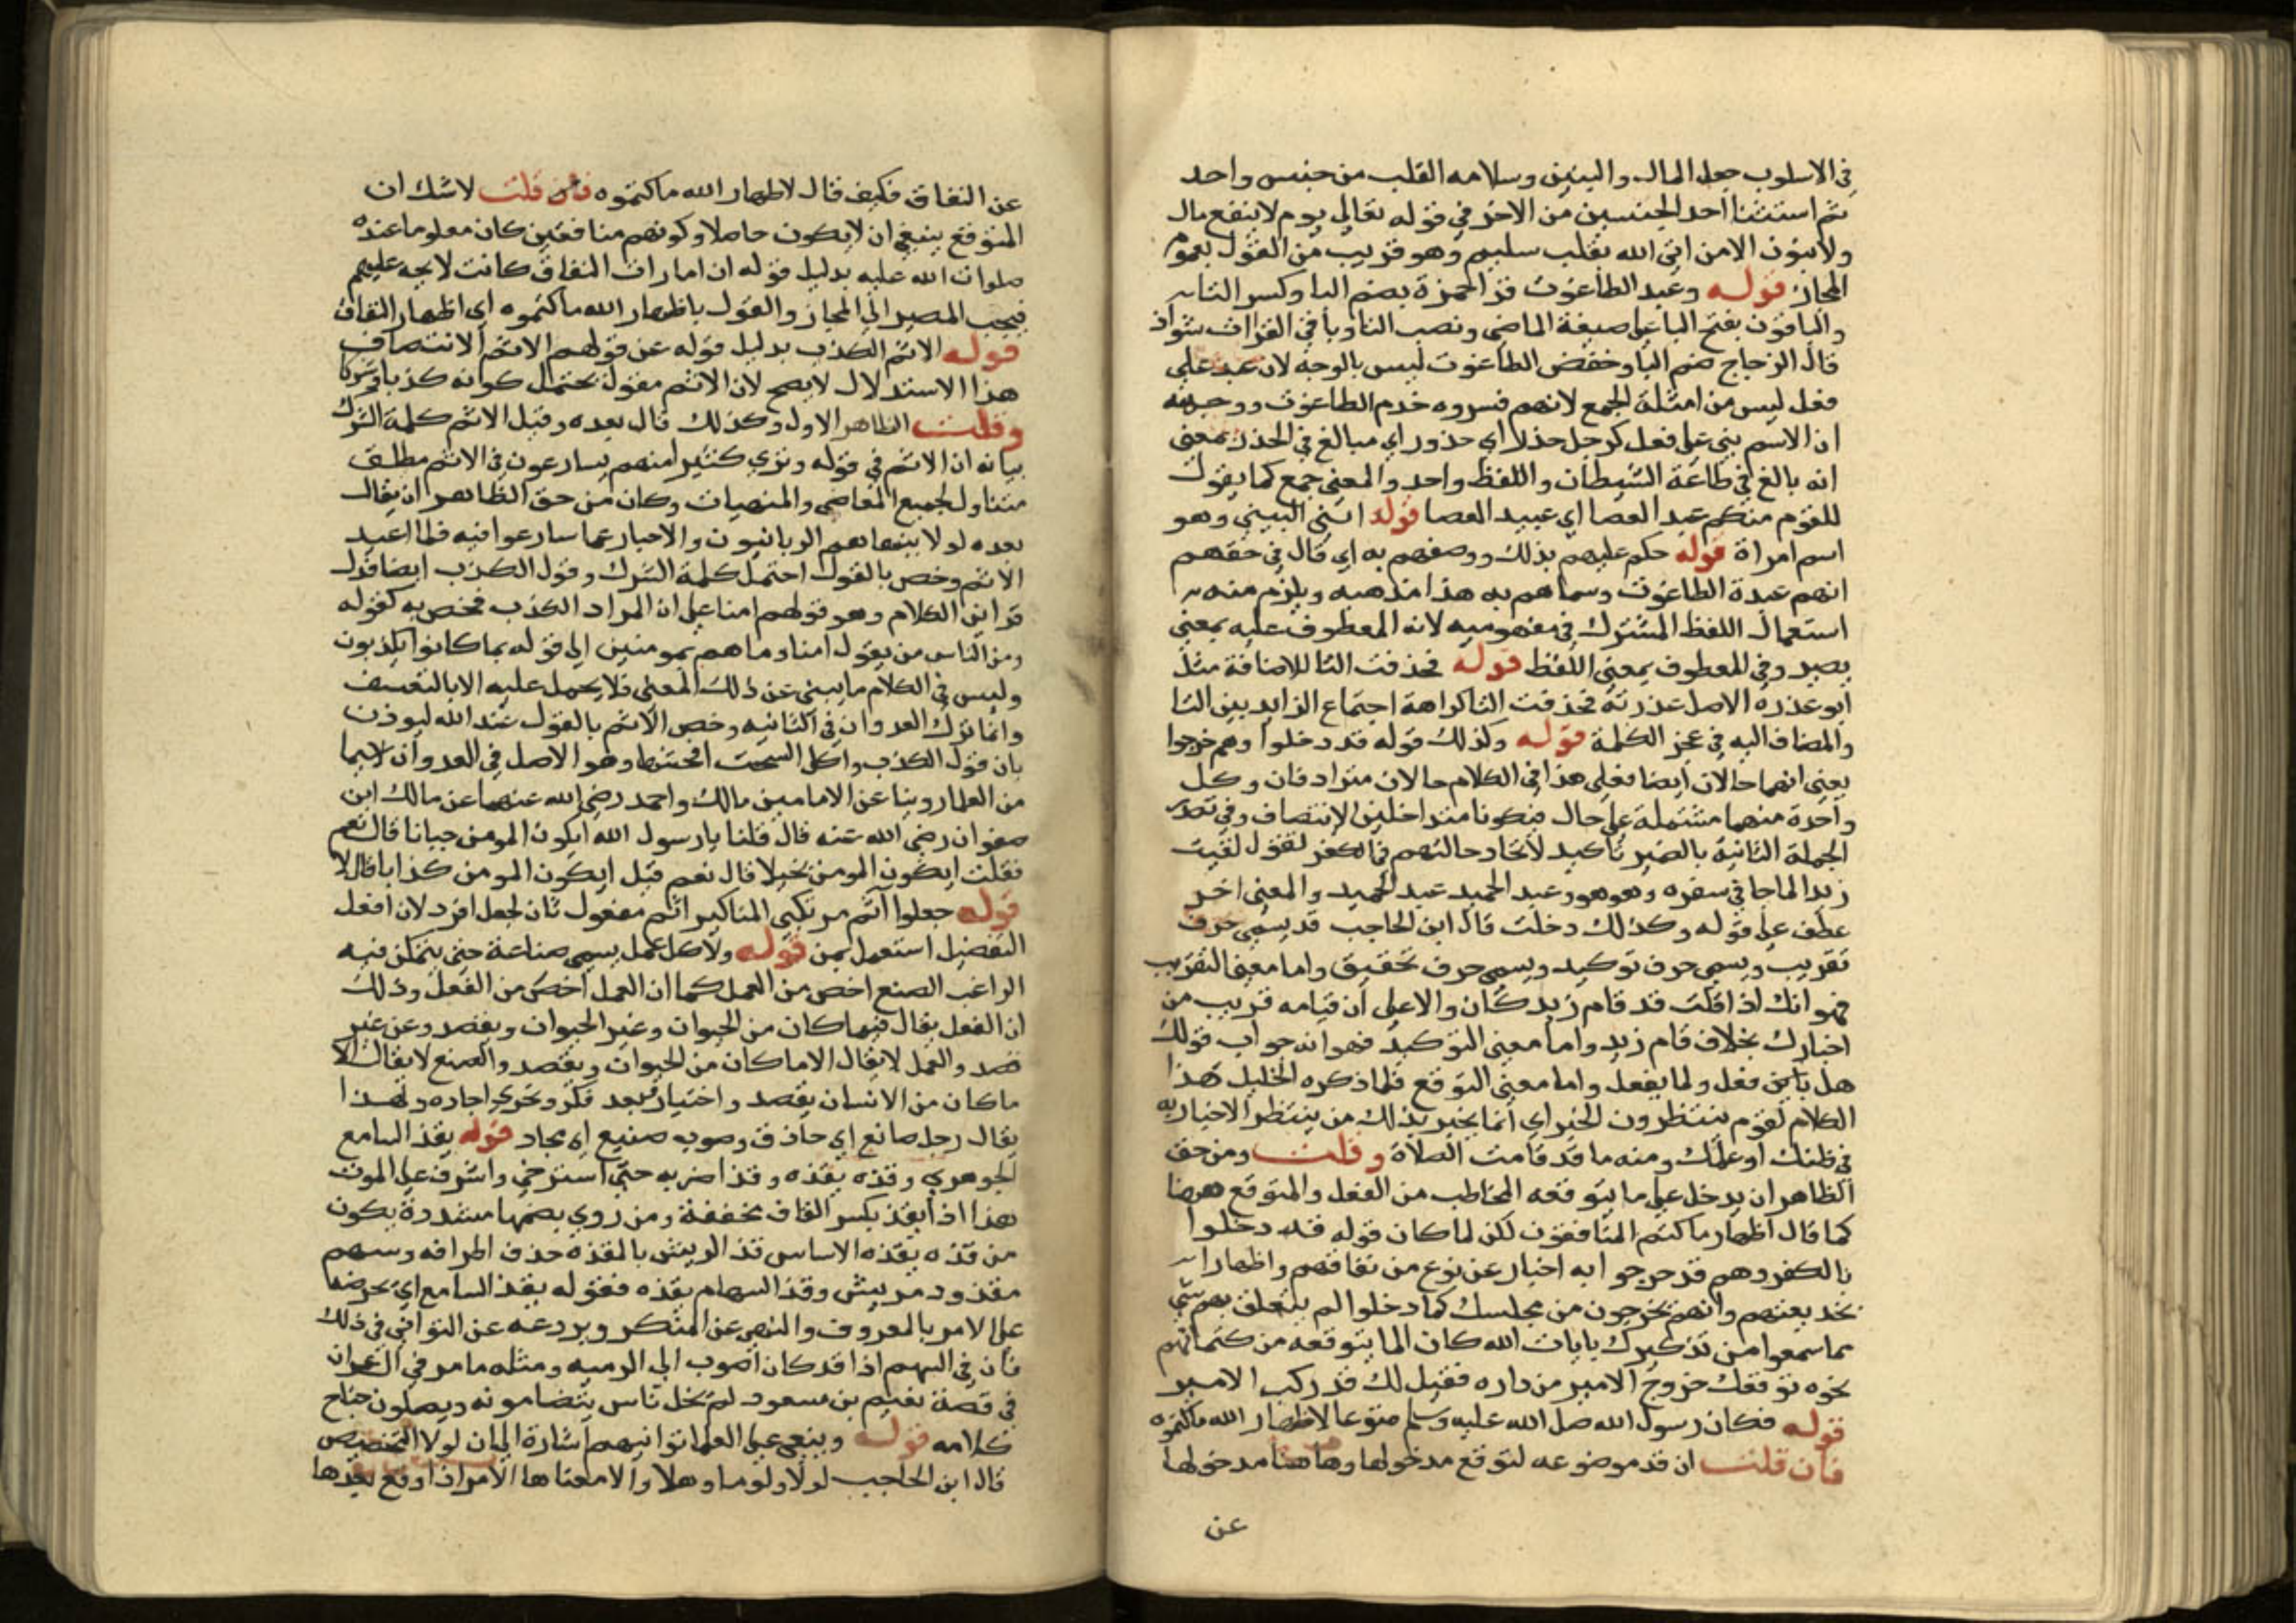 في الاسلوب جعل المال والبنين وسلامه القلب من جنس واحد
ثم استثنا احد الجنسين من الاخر في قوله تعالى يوم لا ينفع مال
ولا بنون الا من اتى الله بقلب سليم وهو قريب من القول بعموم
المجاز قوله وعبد الطاغوت قرا حمزة بضم البا وكسر التا
والباقون بفتح البا على صيغة الماضي ونصب التا وباقي القراات شواذ
قال الزجاج ضم البا وخفض الطاغوت ليس بالوجه لان عبد على
فعل ليس من امثلة الجمع لانهم فسروه خدم الطاغوت ووجهه
ان الاسم بني على فعل كرجل حذر اي حذور اي مبالغ في الحذر بمعنى
انه بالغ في طاعة الشيطان واللفظ واحد والمعنى جمع كما يقول
للقوم منكم عبد العصا اي عبيد العصا قوله ابني لبيني وهو
اسم امراة قوله حكم عليهم بذلك ووصفهم به اي قال في حقهم
انهم عبدة الطاغوت وسماهم به هذا مذهبه ويلزم منه
استعمال اللفظ المشترك في مفهوميه لانه المعطوف عليه بمعنى
يصير وفي المعطوف بمعنى اللفظ قوله فحذفت التا للاضافة مثل
ابو عذره الاصل عذرته فحذفت التا كراهة اجتماع الزايد بين التا
والمضاف اليه في عجز الكلمة قوله وكذلك قوله قد دخلوا وهم خرجوا
يعني انهما حالان ايضا فعلى هذا في الكلام حالان مترادفان وكل
واحدة منهما مشتملة على حال فيكونا متداخلين الانتصاف وفي تصدير
الجملة الثانية بالضمير تاكيد لاتحاد حالتهم في الكفر لقول لقيت
زيدا لما جا في سفره وهو هو وعبد الحميد عبد الحميد والمعنى اخر
عطف على قوله وكذلك دخلت قال ابن الحاجب قد يسمى حرف
تقريب ويسمى حرف توكيد ويسمى حرف تحقيق واما معنى التقريب
فهو انك اذا قلت قد قام زيد كان والا على ان قيامه قريب من
اخبارك بخلاف قام زيد واما معنى التوكيد فهو انه جواب قولك
هل باين فعل ولما يفعل واما معنى التوقع فلما ذكره الخليل هذا
الكلام لقوم ينتظرون الخبر اي انما يخبر بذلك من ينتظر الاخبار به
في ظنك او علمك ومنه ما قد قامت الصلاة وقلت ومن حق
الظاهر ان يدخل على ما يتوقعه المخاطب من الفعل والمتوقع ههنا
كما قال اظهار ما كتم المنافقون لكن لما كان قوله قد دخلوا
بالكفر وهم قد خرجوا به اخبار عن نوع من نفاقهم واظهارا
بخديعتهم وانهم يخرجون من مجلسك كما دخلوا لم يتعلق بهم شي
مما سمعوا من تذكيرك بايات الله كان الما يتوقعه من كتمانهم
نحوه توقعك خروج الامير من داره فقيل لك قد ركب الامير
قوله فكان رسول الله صلى الله عليه وسلم متوقعا لاظهار الله ما كتموه
فان قلت ان قد موضوعه لتوقع مدخولها وها هنا مدخولها
عن
عن النفاق فكيف قال لاظهار الله ما كتموه فان قلت لا شك ان
المتوقع ينبغي ان لا يكون حاصلا وكونهم منافقين كان معلوما عنده
صلوات الله عليه بدليل قوله ان امارات النفاق كانت لايحه عليهم
فيجب المصير الى المجاز والقول باظهار الله ما كتموه اي اظهار النفاق
قوله الاثم الكذب بدليل قوله عن قولهم الاثم الانتصاف
هذا الاستدلال لا يصح لان الاثم مقول يحتمل كونه كذبا وشركا
وقلت الظاهر الاول وكذلك قال بعده وقيل الاثم كلمة الشرك
بيانه ان الاثم في قوله وترى كثيرا منهم يسارعون في الاثم مطلق
متناول لجميع المعاصي والمنهيات وكان من حق الظاهر ان يقال
بعده لولا ينهاهم الربانيون والاحبار عما سارعوا فيه فلما اعيد
الاثم وخص بالقول احتمل كلمة الشرك وقول الكذب ايضا فدل
قراين الكلام وهو قولهم امنا على ان المراد الكذب فخص به كقوله
ومن الناس من يقول امنا وما هم بمومنين الى قوله بما كانوا يكذبون
وليس في الكلام ما يبنى عن ذلك المعنى فلا يحمل عليه الا بالتعسف
وانما ترك العدوان في الثانيه وخص الاثم بالقول عند الله ليوذن
بان قول الكذب واكل السحت افحشها وهو الاصل في العدوان لا سيما
من العلما روينا عن الامامين مالك واحمد رضي الله عنهما عن مالك ابن
صفوان رضي الله عنه قال قلنا يا رسول الله ايكون المومن جبانا قال نعم
فقلت ايكون المومن بخيلا قال نعم قيل ايكون المومن كذابا قال لا
قوله جعلوا آثم مرتكبي المناكير اثم مفعول ثان لجعل افرد لان افعل
التفضيل استعمل بمن قوله ولا كل عمل يسمى صناعة حتى يتمكن فيه
الراغب الصنع اخص من العمل كما ان العمل اخص من الفعل وذلك
ان الفعل يقال فيما كان من الحيوان وغير الحيوان وبقصد وعن غير
قصد والعمل لا يقال الا ما كان من الحيوان وبقصد والصنع لا يقال الا
ما كان من الانسان بقصد واختيار وبعد فكر وتحري اجاده ولهذا
يقال رجل صانع اي حاذق وصوبه صنيع اي مجاد قوله يقذ السامع
الجوهري وقذه يقذه وقذا ضربه حتى استرخى واشرف على الموت
هذا اذا يقذ بكسر القاف مخففة ومن روي بضمها مشددة يكون
من قذه يقذه الاساس قذ الريش بالمقذه حذف اطرافه وسهم
مقذود مريش وقذ السهام يقذه فقوله يقذ السامع اي يحرضها
على الامر بالمعروف والنهي عن المنكر ويردعه عن التواني في ذلك
فان في السهم اذا قد كان اصوب الى الرميه ومثله ما مر في ال عمران
في قصة نعيم بن مسعود لم يخل ناس يتضامونه ويصلون جناح
كلامه قوله وينعى على العلما توانيهم اشارة الى ان لولا التحضيض
قال ابن الحاجب لولا ولوما وهلا والا معناها الامر اذا وقع بعدها